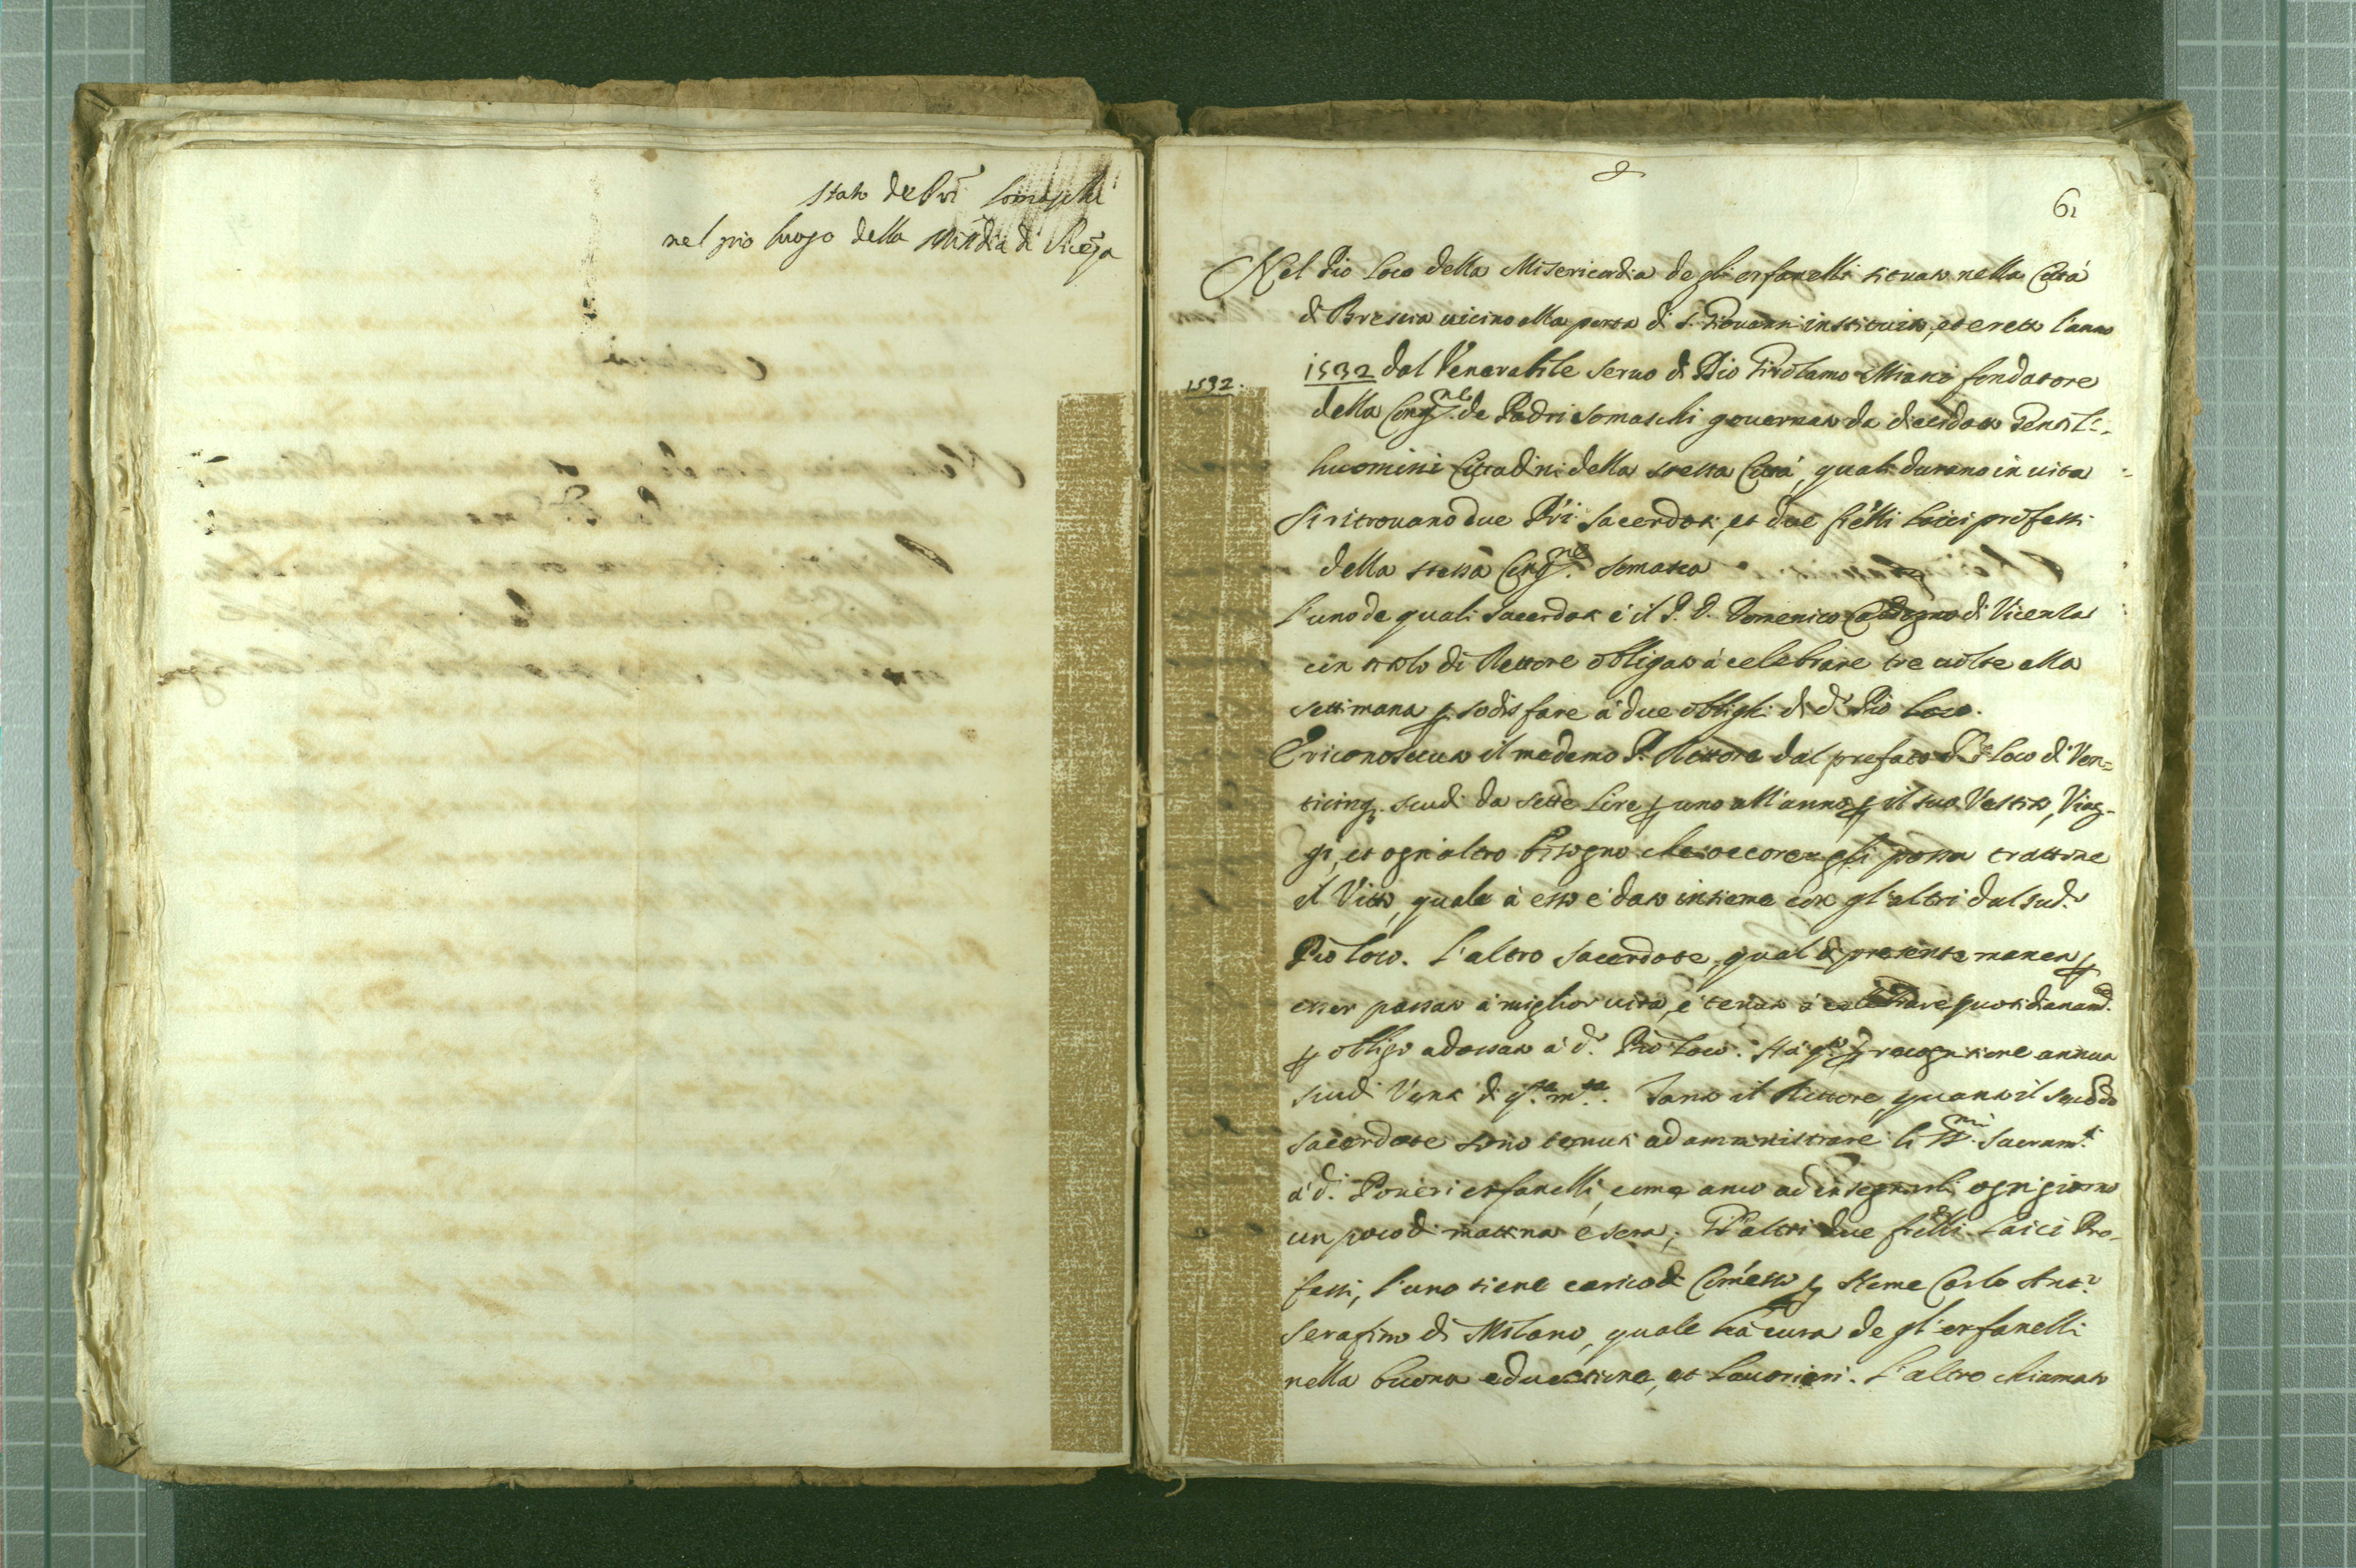 Stato de Pri Somaschi
nel pio luogo della Mindia di
61
Nel Pio Loco della Misericordia de gli orfanelli situato nella Città
di Brescia vicino alla porta di S. Giovanni instituito, et eretto l'anno
1532 dal Venerabile servo di Dio Girolamo Miani fondatore
1532.
della Congne. de Padri Somaschi governato da dieidotto Gentil-
huomini Cittadini della stessa Città, quali durano in vita
Si ritrovano due Pri. Sacerdoti, et due frelli laici professi
della stessa Congne. Somasca
L'uno de quali Sacerdoti è il P. D. Domenico di Vicenza
con titolo di Rettore obligato à celebrare tre volte alla
settimana p. sodisfare à due oblighi di d.o Pio Loco.
È riconosciuto il medemo P. Rettore dal prefato P.o Loco di Ven=
ticinq. scudi da sette Lire p uno all'anno p il suo Vestito, Viag-
gi, et ogn'altro bisogno che occorer gli possa trattone
il Vitto, quale à esso è dato insieme con gl'altri dal sud.o
Pio Loco. L'altro Sacerdote, qual di presente manca p
esser passato à miglior vita, è tenuto à celebrare quotidianamte.
p obligo adossato à d.o Pio Loco. Hà q.to p recognitione annua
scudi Venti di q.ta m.ta. Tanto il Rettore, quanto il secondo
Sacerdote sono tenuti ad amministrare li SS.mi Sacram.ti
à d.i Poveri orfanelli, come anco ad insegnarli ogni giorno
un poco di mattina e sera; Gl'altri due frelli Laici Pro-
fessi, l'uno tiene carico di Comesso p Nome Carlo Ant.o
Serafino di Milano, quale hà cura de gl'orfanelli
nella buona educatione, et Lavorieri. L'altro chiamato